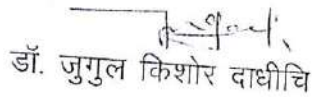 डॉ. जुगुल किशोर दाधीचि